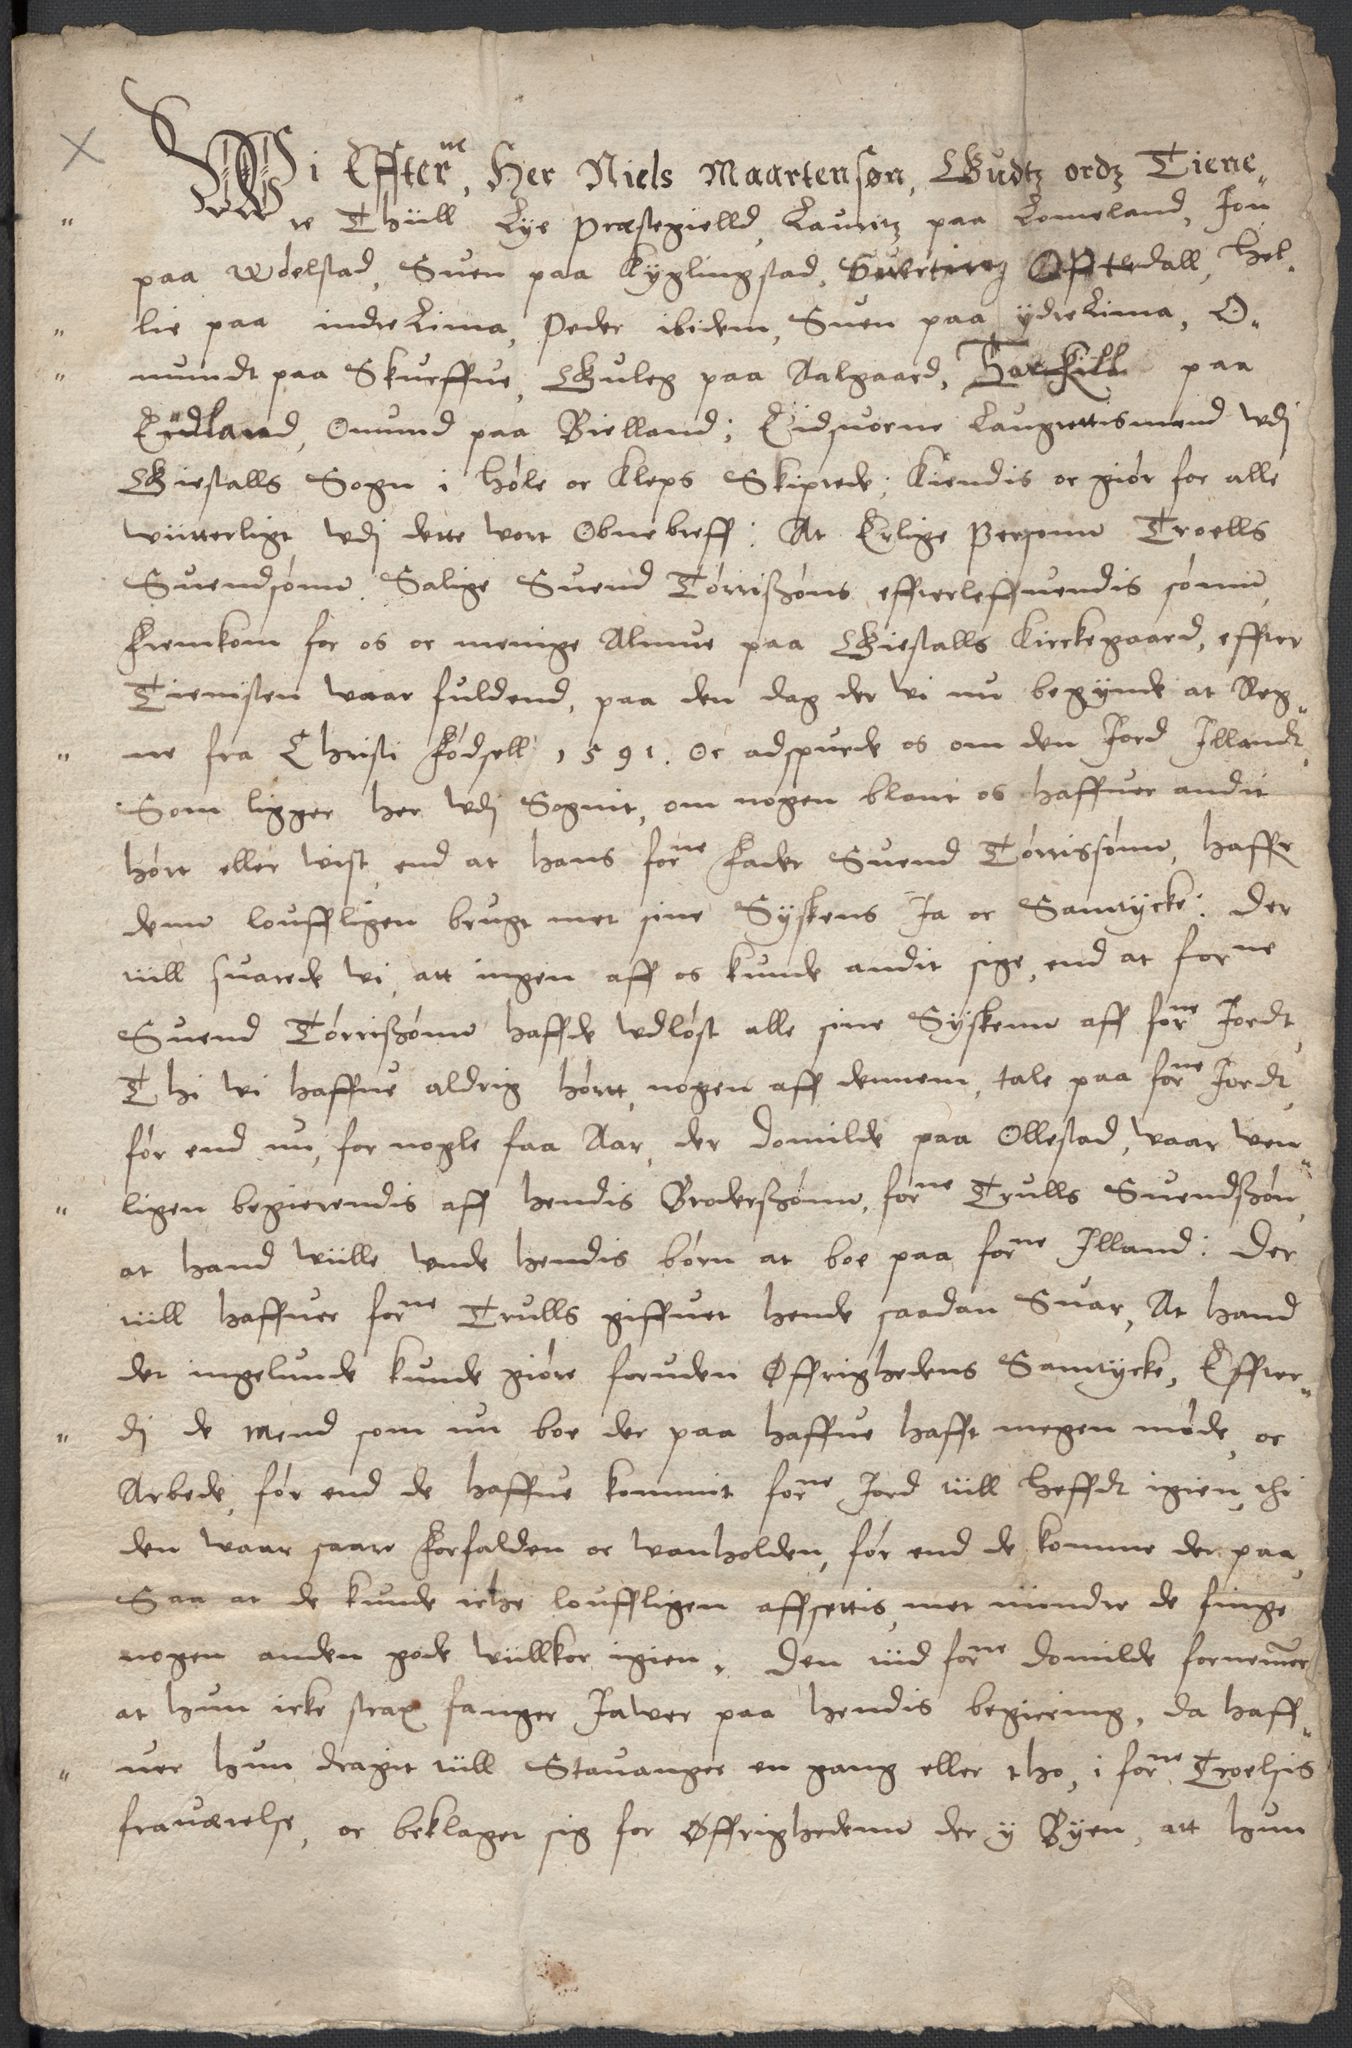 Wi Effterne, Her Niels Maartensøn, Gudtz ordz Tiene„
re Thüll Lye Præstegielld, Lauritz paa Lomeland, Jon
paa Wdelstad, Suen paa Kyglingstad, Suerting Offterdall, Hel„
lie paa indre Lima, Peder ibidem, Suen paa ydre Lima, O„
mundt paa Skurffue, Guleg paa Aalgaard, Tarkild paa
Eidland, Omund paa Bielland; Eidsuorne Laugrettismend wdj
Giestalls Sogn i Høle oc Kleps Skiprede; Kiendis oc giør for alle
witterligt wdj dette vort Obne breff: At Erlige Personn Troells
Suendsønn Salige Suend Tørrisszøns effterleffuendis sønn,
Fremkom for os oc menige Almue paa Giestalls Kirckegaard, effter
Tienisten vaar fuldend, paa den dag der vi nu begynde at Reg„
ne fra Christi Fødsell 1591. Oc adspurde os om den Jord Illandt,
Som ligger her wdj Sognit, om nogen blant os haffuer andit
hørt eller vist, end at hans forne Fader Suend Tørrissønn, haffr
denn louffligen brugt met sine Syskens Ja oc Samtycke: Der
till suarede vi, att ingen aff os kunde andit sige, end at forne
Suend Tørrisszønn haffde wdløst alle sine Syskenn aff forne Jordt,
Thi vi haffue aldrig hørtt, nogen aff dennem, tale paa forne Jordt,
før end nu, for nogle faa Aar, der Domilde paa Ollestad, vaar ven„
ligen begierendis aff hendis Broderszønn, forne Trulls Suendszøn,
at hand ville vnde hendis børn at boe paa forne Illand: Der
till haffuer forne Trulls giffuet hende saadan Suar, At hand
det ingelunde kunde giøre foruden Øffrighedens Samtycke, Effter„
dj de Mend som nu boe der paa haffue hafft megen møde, oc
Arbede, før end de haffue kommit forne Jord till heffdt igien, thi
den vaar saare Forfalden oc vanholden, før end de komme der paa,
Saa at de kunde icke louffligen affsettis, met mindre de finge
nogen anden gode villkor igien. Den tid forne Domilde fornemmer
at hun icke strax fanger Javer paa hendis begiering, da haff„
uer hun dragit till Stavanger en gang eller tho, i forne Troelsis
fraværelse, oc beklaget sig for Øffrighedenn der y Byen, att hun